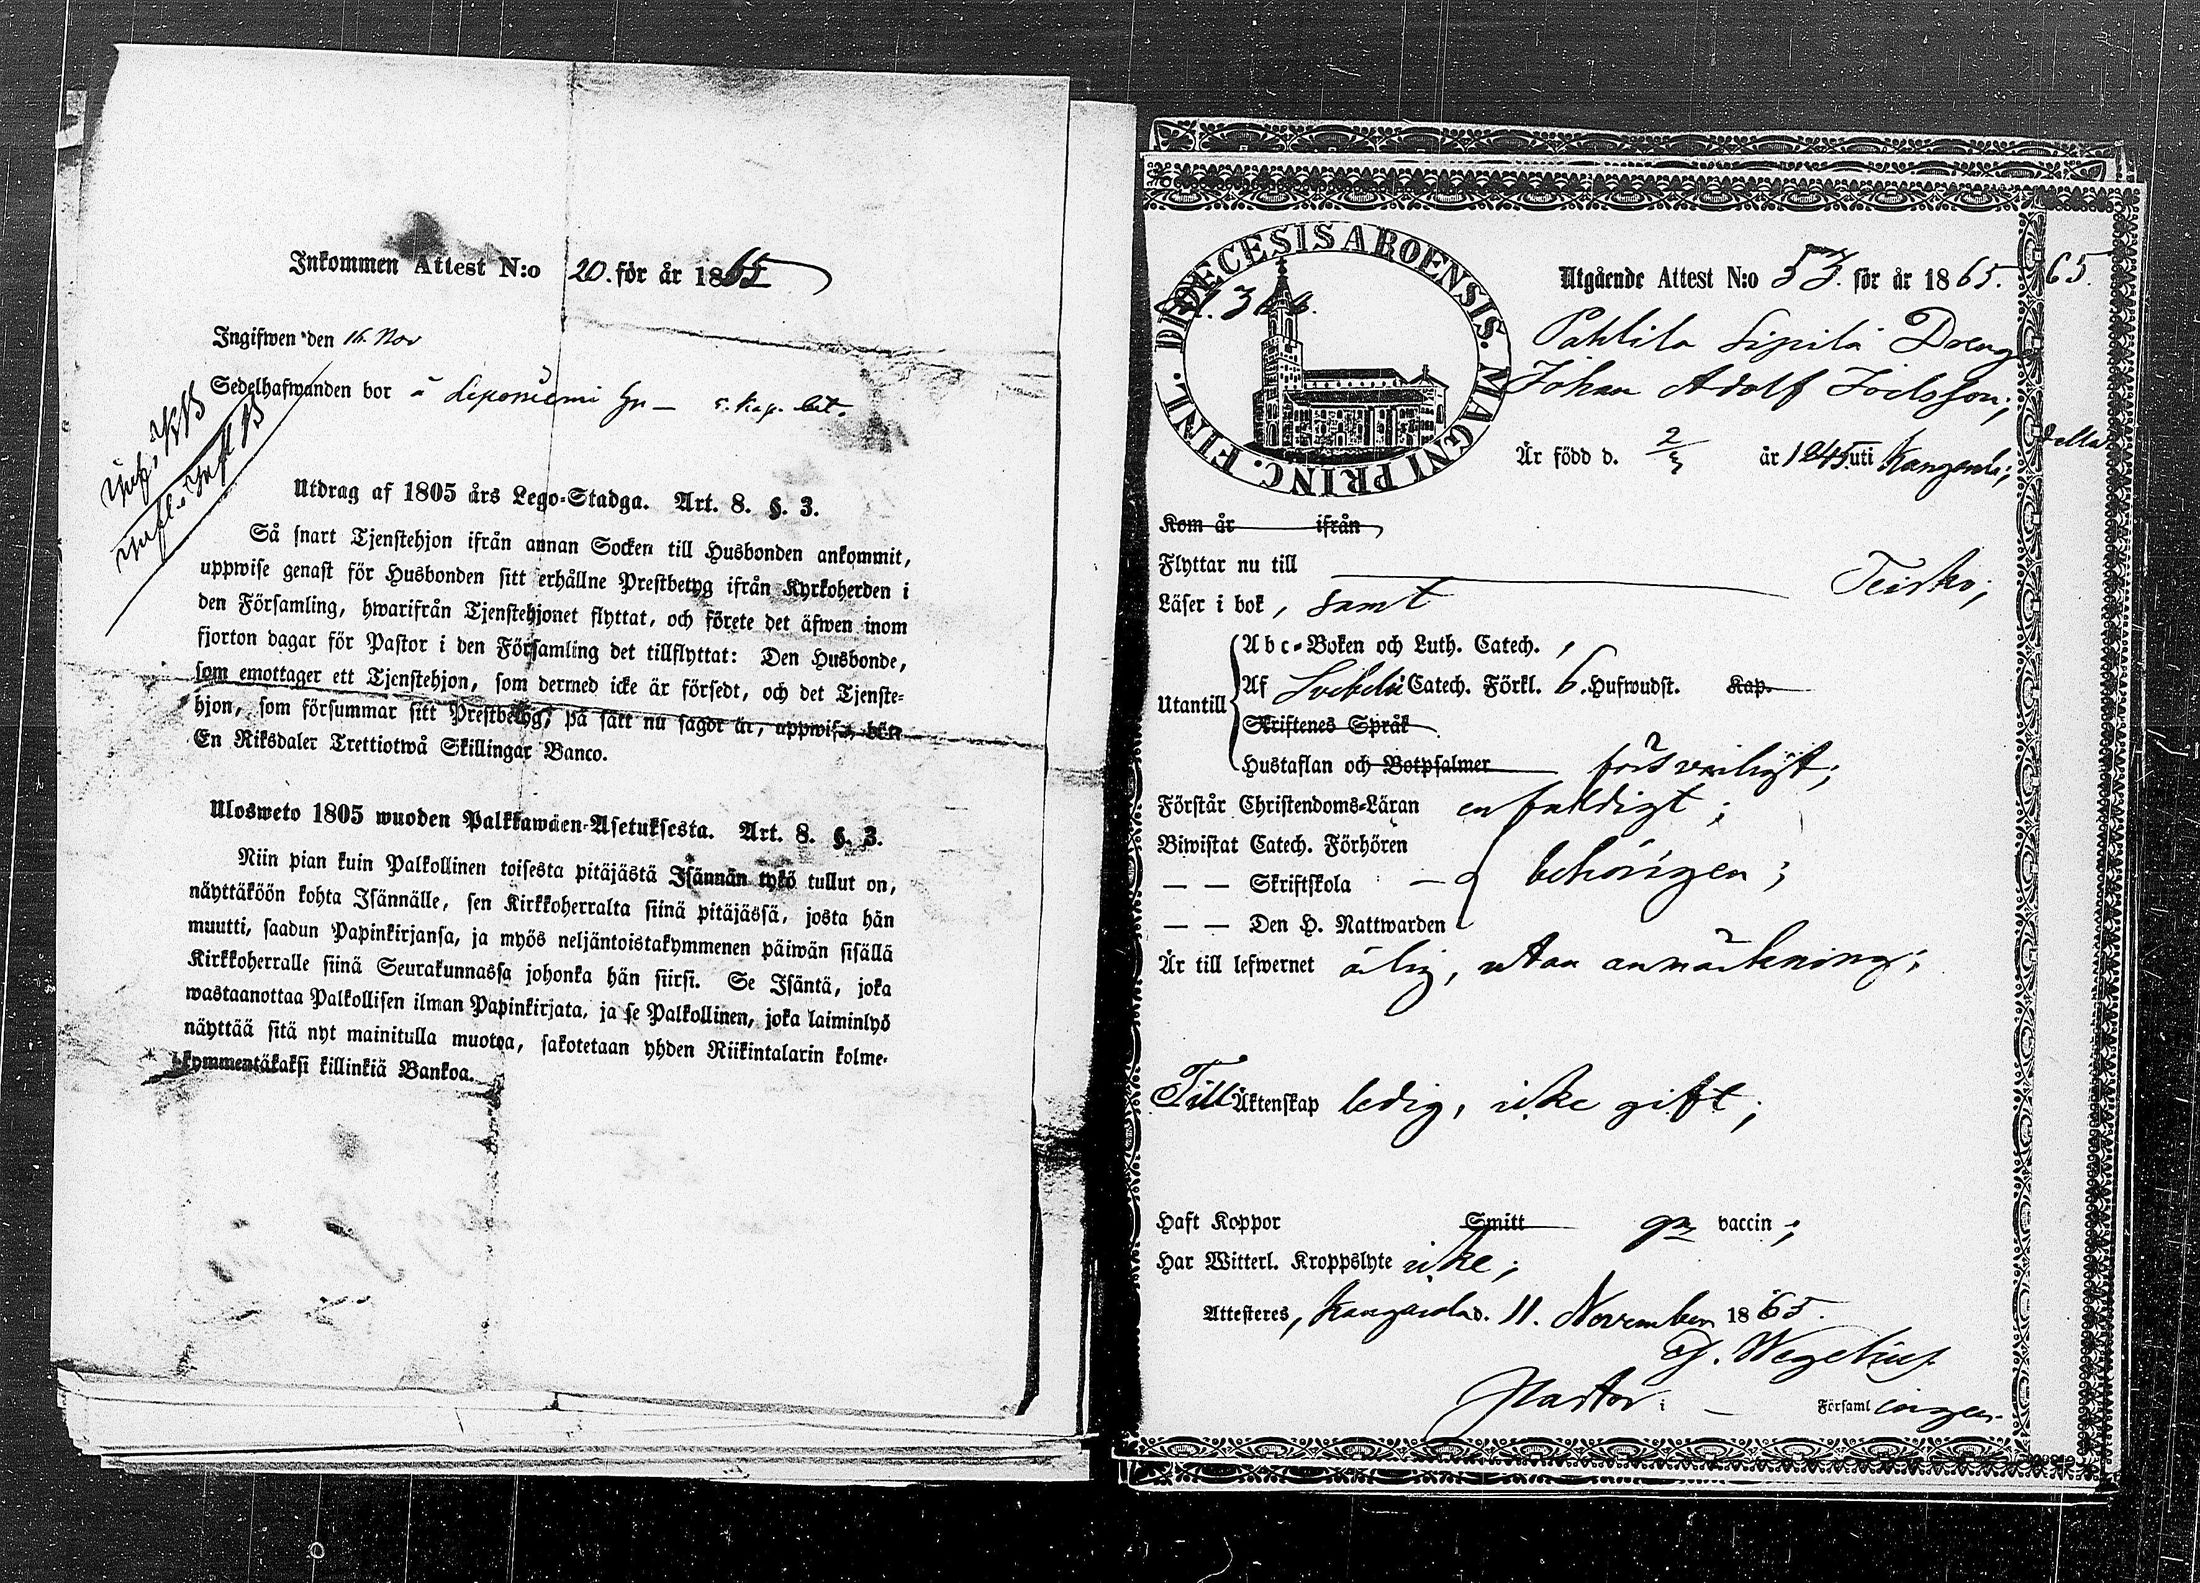 Inkommen Attest N:o 20. för år 1865
Ingifwen den 16 Nov
Sedelhafwanden bor å Leponiemi
Utdrag af 1805 års Lego-Stadga. Art. 8. §. 3.
Så snart Tjenstehjon ifrån annan Socken till Husbonden ankommit,
uppwise genast för Husbonden sitt erhållne Prestbetyg ifrån Kyrkoherden i
den Församling, hwarifrån Tjenstehjonet flyttat, och förete det äfwen inom
fjorton dagar för Pastor i den Församling det tillflyttat: Den Husbonde,
som emottager ett Tjenstehjon, som dermed icke är försedt, och det Tjenste-
hjon, som försummar sitt Prestbetyg, på sätt nu sagdt är, uppwisa, böte
En Riksdaler Trettiotwå Skillingar Banco.
Ulosweto 1805 wuoden Palkkawäen-Asetuksesta. Art. 8. §. 3.
Niin pian kuin Palkollinen toisesta pitäjästä Isännän tykö tullut on,
näyttäköön kohta Isännälle, sen Kirkkoherralta siinä pitäjässä, josta hän
muutti, saadun Papinkirjansa, ja myös neljäntoistakymmenen päiwän sisällä
Kirkkoherralle siinä Seurakunnassa johonka hän siirsi. Se Isäntä, joka
wastaanottaa Palkollisen ilman Papinkirjata, ja se Palkollinen, joka laiminlyö
näyttää sitä nyt mainitulla muotoa, sakotetaan yhden Riikintalarin kolme-
kymmentäkaksi killinkiä Bankoa.
DIOECESIS ABOENSIS. MAGNI PRINC. FINL.
Utgående Attest N:o 53. för år 1865. 65.
Pahlila Sipilä Dreng
Johan Adolf Joelsson;
Är född d. 2/3 år 1845 uti Kangasala;
Kom år ifrån
Flyttar nu till Teisko;
Läser i bok, samt
Utantill
Abc-Boken och Luth. Catech.,
Af Svebelii Catech. Förkl. 6. Hufwudst. Kap.
Skriftenes Språk
Hustaflan och Botpsalmer försvarligt;
Förstår Christendoms-Läran enfaldigt;
Biwistat Catech. Förhören
— — Skriftskola — behörigen;
— — Den H. Nattwarden
Är till lefwernet ärlig, utan anmärkning;
Till Äktenskap ledig, icke gift;
Haft Koppor Smitt gm vaccin;
Har Witterl. Kroppslyte icke;
Attesteres, Kangasala d. 11. November 1865.
G. Wegelius
Pastor i — Församlingen.